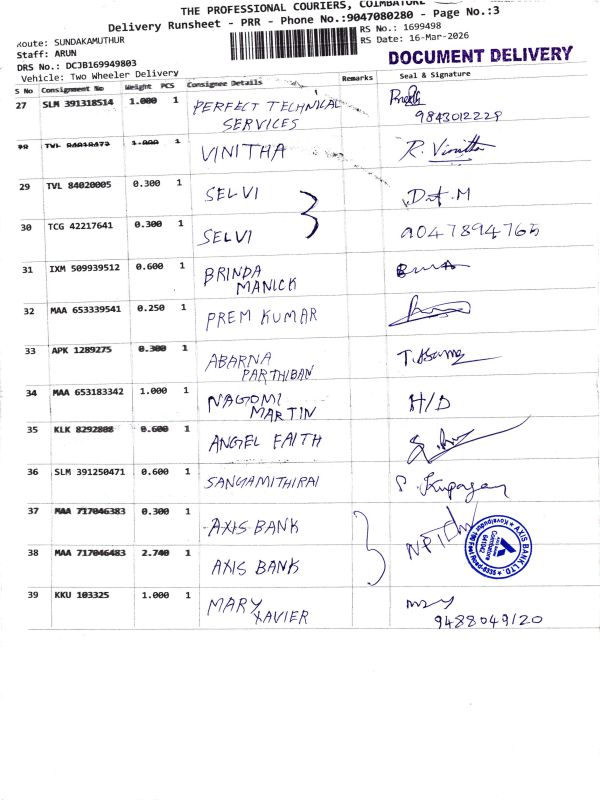 THE PROFESSIONAL COURIERS, COIMBATORE
Delivery Runsheet - PRR - Phone No.:9047080280 - Page No.:3
Route: SUNDAKAMUTHUR
RS No.: 1699498
Staff: ARUN
RS Date: 16-Mar-2026
DRS No.: DCJB169949803
DOCUMENT DELIVERY
Vehicle: Two Wheeler Delivery
S No Consignment No Weight PCS Consignee Details Remarks Seal & Signature
27 SLM 391318514 1.000 1 PERFECT TECHNICAL
SERVICES
9843012229
1.000 1 VINITHA R. Vinitha
29 TVL 84020005 0.300 1 SELVI
30 TCG 42217641 0.300 1 SELVI 9047894765
31 IXM 509939512 0.600 1 BRINDA
MANICK
32 MAA 653339541 0.250 1 PREM KUMAR
33 APK 1289275 0.300 1 ABARNA
PARTHIBAN
34 MAA 653183342 1.000 1 NAGOMI
MARTIN
H/D
35 KLK 8292808 0.600 1 ANGEL FAITH
36 SLM 391250471 0.600 1 SANGAMITHIRAI
37 MAA 717046383 0.300 1 AXIS BANK
38 MAA 717046483 2.740 1 AXIS BANK
AXIS BANK LTD.
Coimbatore
641042
39 KKU 103325 1.000 1 MARY
XAVIER
9488049120